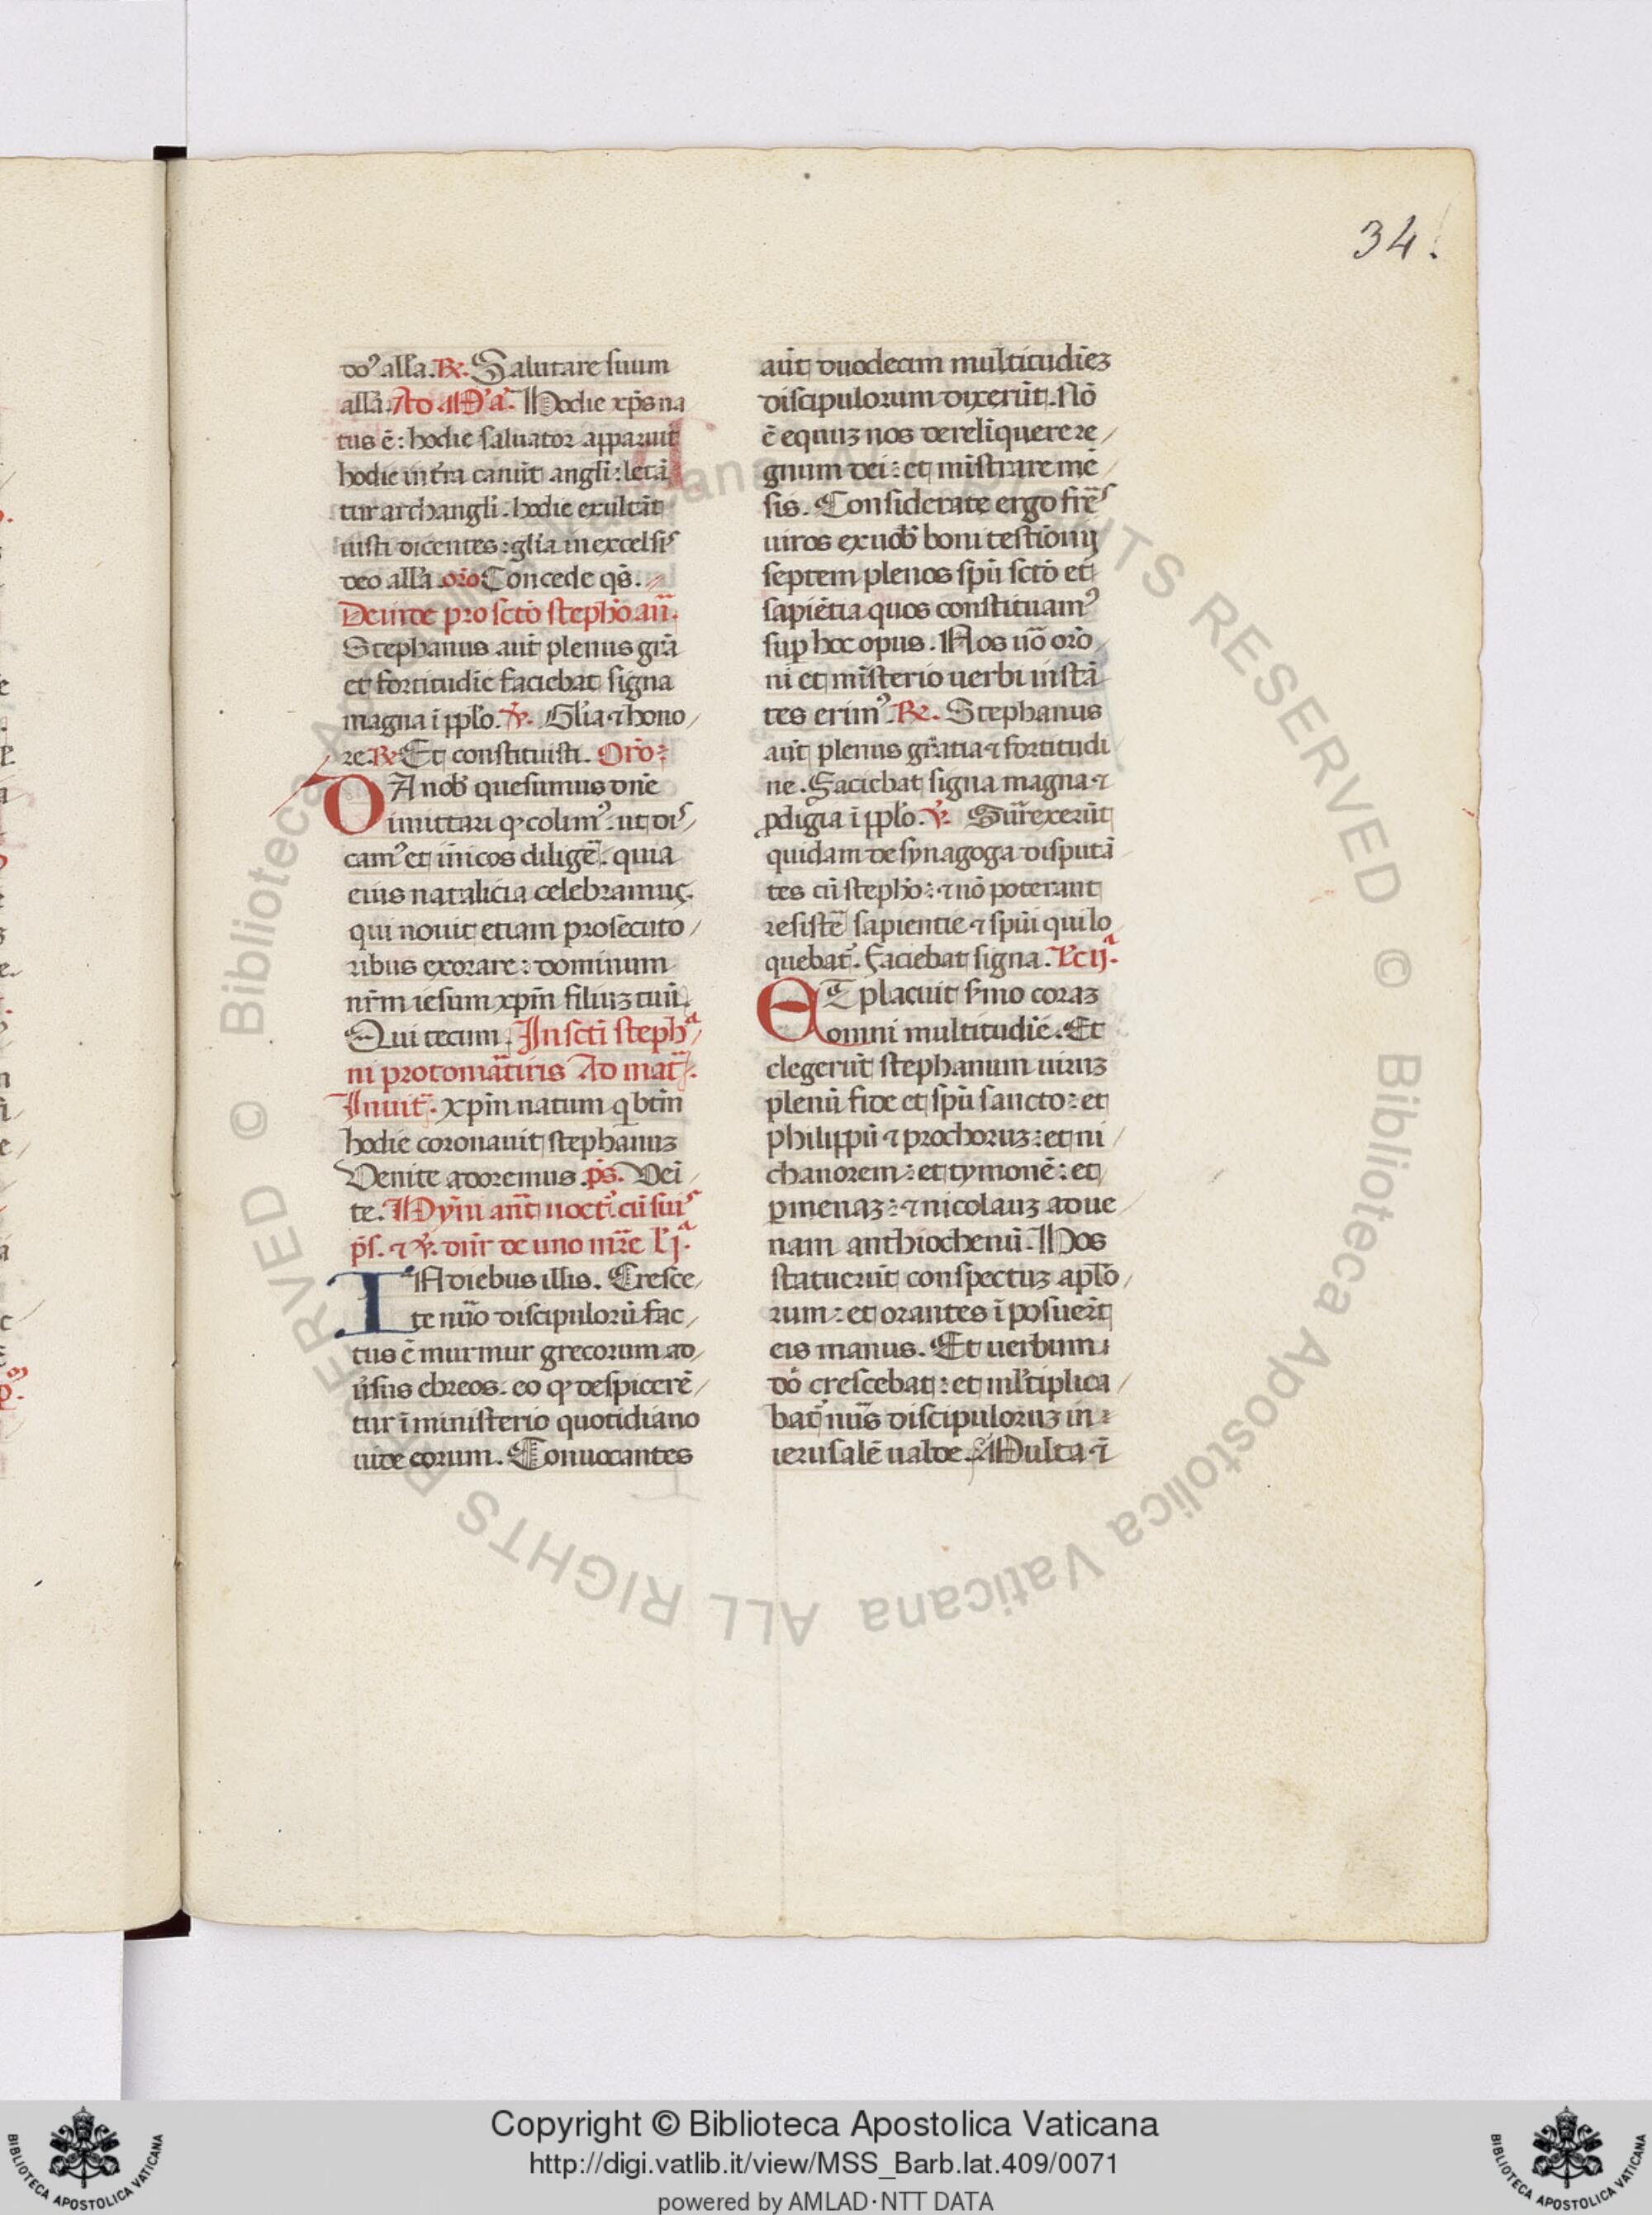 34.
do᾽ all'a. R. Salutare suum
all'a. Ad M'a'. Hodie xp̄s na
tus ē: hodie saluator apparuit
hodie in t̄ra canūt angl̄i: letā
tur archangl̄i. hodie exultāt
iusti dicentes: gl̄ia in excelsis
deo all'a. oro Concede qs̄.
Deinde pro scto stepho an̄.
Stephanus aut̄ plenus grā
et fortitudīe faciebat signa
magna ī pplo. V. Glīa ⁊ hono
re R. Et constituisti. Oro:
DA nob̄ quesumus dn̄e
imittari q̄ colim᾽: ut dis
cam᾽ et inīcos diligē. quia
eius natalicia celebramus.
qui nouit etiam prosecuto
ribus exorare: dominum
nr̄m iesum xp̄m filiuz tuū.
Qui tecum. In scti steph
ni protomār̄tiris Ad mat̄.
Inuit̄. xp̄m natum q btm̄
hodie coronauit stephanuz
Venite adoremus. ps̄. Vēi
te. Hym̄ an̄t noct̄. cū suis
ps̄. ⁊ V. dn̄r de uno mr̄e l'j.a
IN diebus illis. Cresce
te nūo discipulorū fac
tus ē murmur grecorum ad
úsus ebreos. eo q̄ despicerē
tur ī ministerio quotidiano
uide eorum. Conuocantes
aut̄ duodecim multitudīez
discipulorum dixerūt. Nō
ē equuz nos dereliquere re
gnum dei: et mīstrare mē
sis. Considerate ergo frēs
uiros ex uob̄ boni testionij
septem plenos spū scto et
sapiētia quos constituam᾽
sup̄ hoc opus. Nos uō orō
ni et mīsterio uerbi instā
tes erim᾽. R. Stephanus
aut̄ plenus gratia ⁊ fortitudi
ne. Faciebat signa magna ⁊
ꝓdigia ī pplo. V. Surrexerūt
quidam de synagoga disputā
tes cū stepho: ⁊ nō poterant
resistē sapientie ⁊ spūi qui lo
quebat᾽. Faciebat signa. Lc ij.a
ET placuit s'mo coraz
omni multitudīe. Et
elegerūt stephanum uiruz
plenū fide et spū sancto: et
philippū ⁊ prochoruz: et ni
chanorem: et tymonē: et
ꝑmenaz: ⁊ nicolauz adue
nam anthiochenū. Hos
statuerūt conspectuz aplo
rum: et orantes īposuer̄t
eis manus. Et uerbum
dō crescebat: et ml̄tiplica
bat᾽ nūs discipuloruz in
ierusalē ualde. Multa ⁊ ī
Copyright © Biblioteca Apostolica Vaticana
http://digi.vatlib.it/view/MSS_Barb.lat.409/0071
powered by AMLAD·NTT DATA
BIBLIOTECA APOSTOLICA VATICANA
BIBLIOTECA APOSTOLICA VATICANA
© Biblioteca Apostolica Vaticana ALL RIGHTS RESERVED © Biblioteca Apostolica Vaticana ALL RIGHTS RESERVED